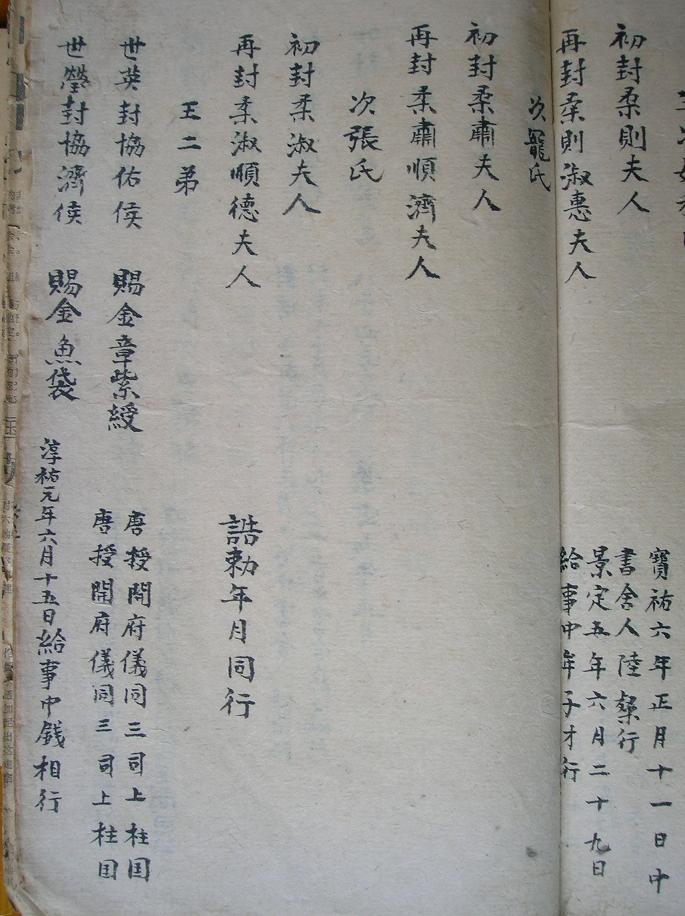 初封柔則夫人
寶祐六年正月十一日中
書舍人陸粲行
再封柔則淑惠夫人
景定五年六月二十九日
給事中牟子才行
次龍氏
初封柔肅夫人
再封柔肅順濟夫人
次張氏
初封柔淑夫人
再封柔淑順德夫人
誥勅年月同行
王二弟
世英封協佑侯 賜金章紫綬
唐授開府儀同三司上柱国
唐授開府儀同三司上柱国
世瑩封協濟侯 賜金魚袋
淳祐元年六月十五日給事中錢相行